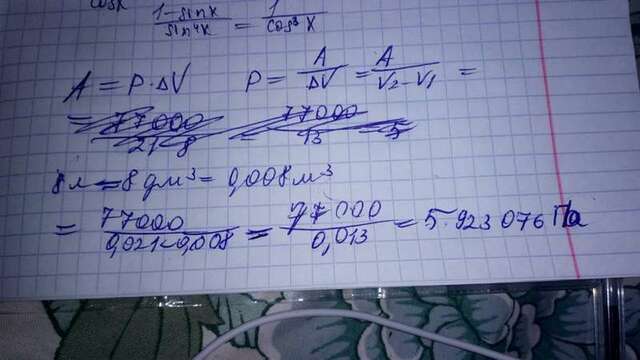 cosx
1-sinx / sin⁴x = 1 / cos³x
A = P·ΔV P = A/ΔV = A/(V₂-V₁) =
= 77000/21-8 = 77000/13
8л = 8дм³ = 0,008м³
= 77000/0,021-0,008 = 77000/0,013 = 5.923 076 Па